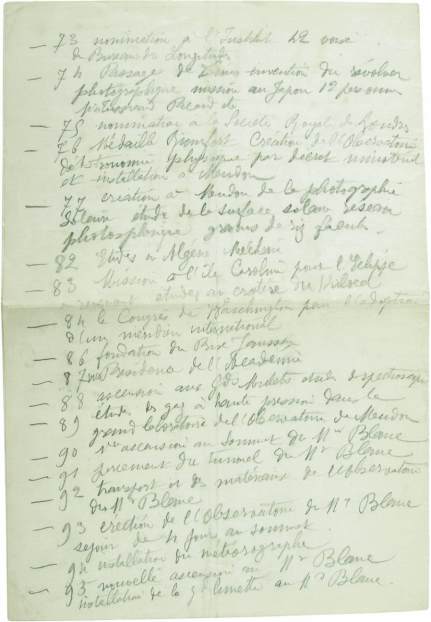 — 73 nomination à l'Institut 42 voix
du Bureau des Longitudes
— 74 Passage de Vénus invention du révolver
photographique mission au Japon 12 personnes
— 75 nomination à la Société Royale de Londres
— 76 Médaille Création de l'Observatoire
d'Astronomie physique par décret ministériel
et installation à Meudon
— 77 création à Meudon de la photographie
solaire étude de la surface solaire réseau
photosphérique grains de riz
— 82 Etudes en Algérie
— 83 Mission à l'île Caroline pour l'Eclipse
au retour études au cratère du
— 84 le Congrès de Washington pour l'adoption
d'un méridien international
— 86 fondation du Prix Janssen
— 87 Présidence de l'Académie
— 88 ascension aux Gds Mulets études spectroscop
— 89 études des gaz à haute pression dans le
grand laboratoire de l'Observatoire de Meudon
— 90 1re ascension au sommet du Mt Blanc
— 91 percement du tunnel du Mt Blanc
— 92 transport des matériaux de l'Observatoire
du Mt Blanc
— 93 érection de l'Observatoire du Mt Blanc
séjour de 4 jours au sommet
— 94 installation du météorographe
— 95 nouvelle ascension au Mt Blanc
installation de la gde lunette au Mt Blanc.